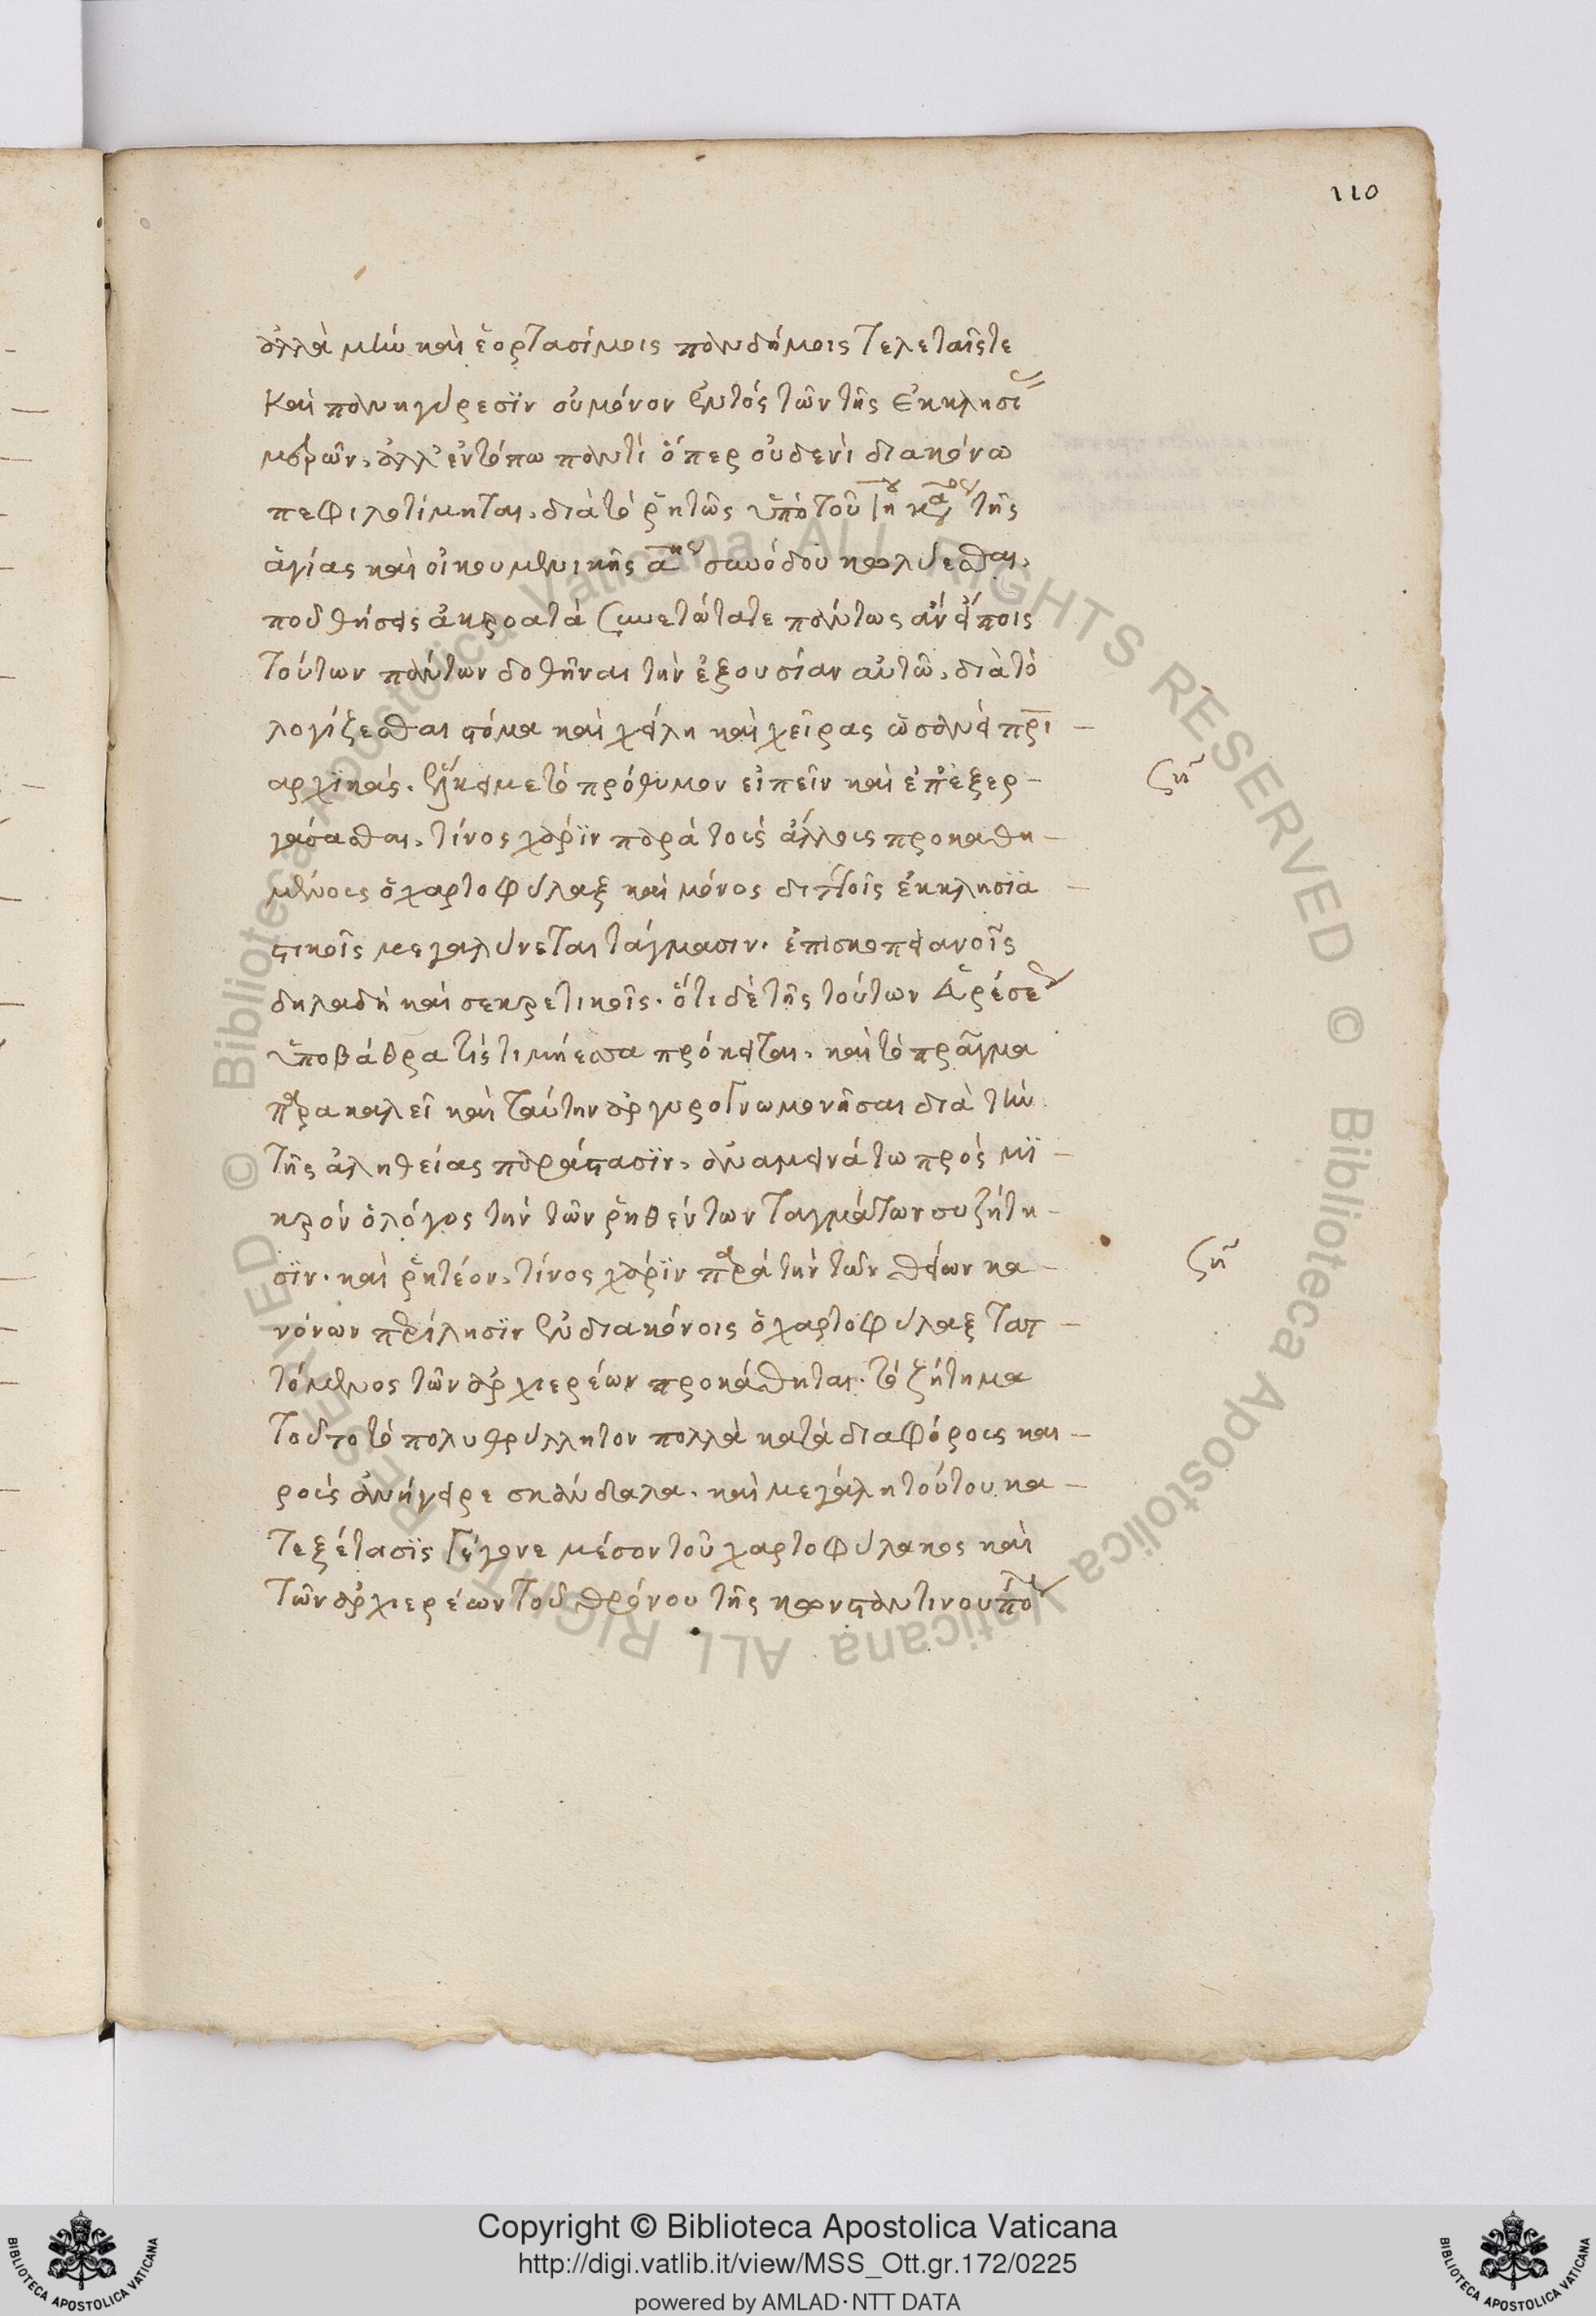 110
ἀλλὰ μὴν καὶ ἑορτασίμοις πανδήμοις τελεταῖς τε
καὶ πανηγύρεσϊν οὐ μόνον ἐντὸς τῶν τῆς ἐκκλησι
μερῶν, ἀλλ' ἐν τόπω παντὶ ὅπερ οὐδενὶ διακόνω
πεφιλοτίμηται, διὰ τὸ ῥητῶς ὑπὸ τοῦ ιη τῆς
ἁγίας καὶ οἰκουμενικῆς α συνόδου κωλύεσθαι,
ποθήσεις ἀκροατὰ συνετώτατε πάντως ἂν εἴποις
τούτων πάντων δοθῆναι τὴν ἐξουσίαν αὐτῶ, διὰ τὸ
λογίζεσθαι στόμα καὶ χείλη καὶ χεῖρας ὡσανεὶ πρι
αρχϊκάς. ἕλκει με τὸ πρόθυμον εἰπεῖν καὶ ἐπεξερ-
γάσασθαι, τίνος χάρϊν παρὰ τοὺς ἄλλους προκαθη-
μένους ὁ χαρτοφύλαξ καὶ μόνος διττοῖς ἐκκλησϊα
στικοῖς μεγαλύνεται τάγμασιν. ἐπισκοπειανοῖς
δηλαδὴ καὶ σεκρετικοῖς. ὅτι δὲ τῆς τούτων
ὑποβάθρα τὶς τιμήεσσα πρόκειται, καὶ τὸ πρᾶγμα
παρακαλεῖ καὶ ταύτην ἀργυρογνωμονῆσαι διὰ τὴν
τῆς ἀληθείας παράστασϊν, ἀναμεινάτω πρὸς μϊ-
κρὸν ὁ λόγος τὴν τῶν ῥηθέντων ταγμάτων συζήτη-
σϊν. καὶ ῥητέον, τίνος χάρϊν παρὰ τὴν τῶν θείων κα-
νόνων περίλησϊν ἐν διακόνοις ὁ χαρτοφύλαξ ταττ-
τόμενος τῶν ἀρχιερέων προκάθηται. τὸ ζήτημα
τοῦτο τὸ πολυθρύλλητον πολλὰ κατὰ διαφόρους και-
ροὺς ἀνήγειρε σκάνδαλα. καὶ μεγάλη τούτου κα-
τεξέτασϊς γέγονε μέσον τοῦ χαρτοφύλακος καὶ
τῶν ἀρχιερέων τοῦ θρόνου τῆς κωνσταντινουπό
ζη
ζη
Copyright © Biblioteca Apostolica Vaticana
http://digi.vatlib.it/view/MSS_Ott.gr.172/0225
powered by AMLAD·NTT DATA